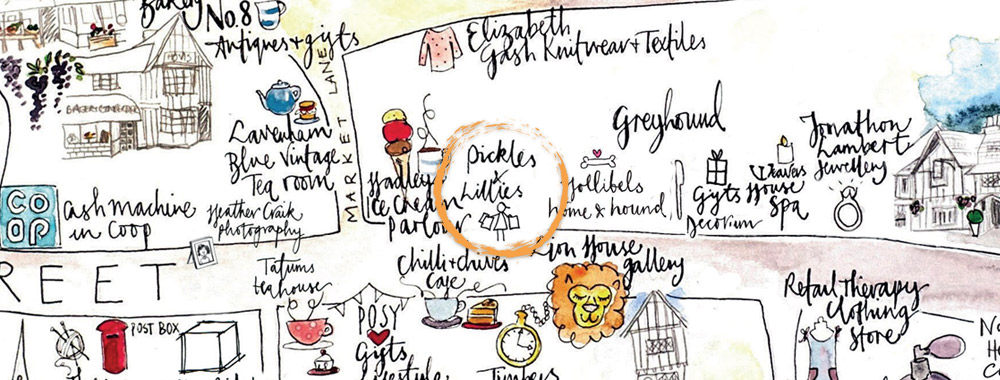 Bakery
No.8
Antiques + gifts
Elizabeth
Gash Knitwear + Textiles
BAKERY
MARKET LANE
Lavenham
Blue Vintage
Tea room
CO
OP
Cash machine
in Coop
Heather Craik
photography
Hadleys
Ice Cream
parlour
Pickles
&
Lillies
Greyhound
Jollibels
home & hound
Gifts
Decorum
Weavers
House
Spa
Jonathon
Lambert
Jewellery
REET
Tatums
teahouse
Chilli + chives
Cafe
Lion House
gallery
Retail Therapy
Clothing
Store
POST BOX
POSY
Gifts
Lifestyle
Timbers